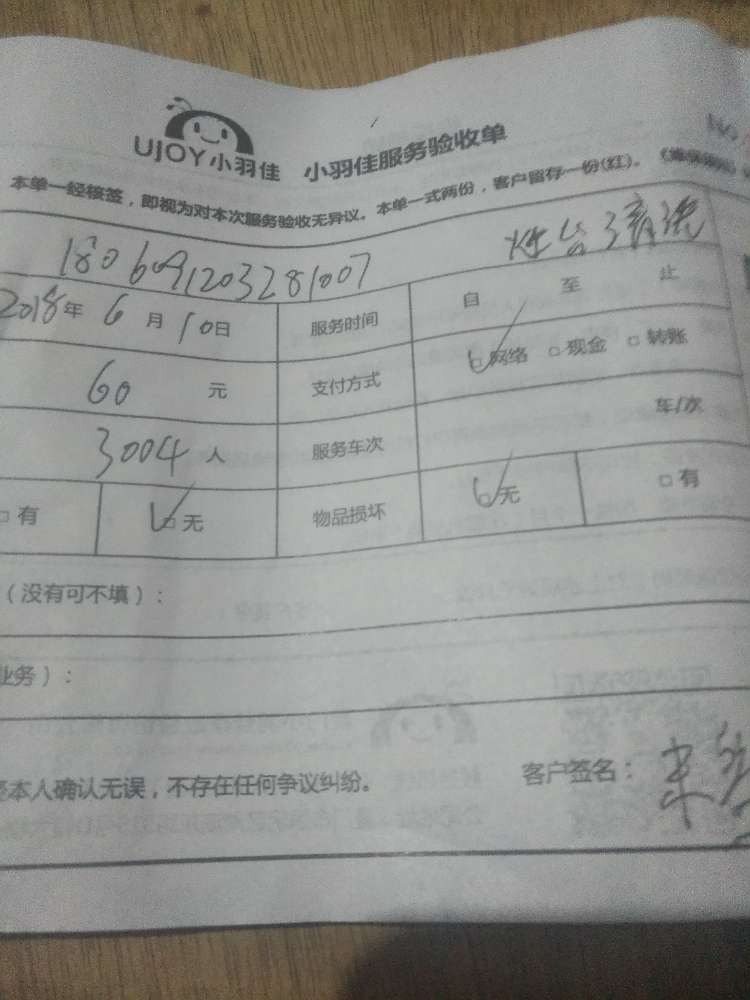 UJOY小羽佳 小羽佳服务验收单
No
本单一经核签，即视为对本次服务验收无异议。本单一式两份，客户留存一份(红)。
1806091203281007
2018年6月10日 服务时间 自 至 止
60 元 支付方式 □网络 □现金 □转账
3004人 服务车次 车/次
□有 □无 物品损坏 □无 □有
（没有可不填）：
业务）：
本人确认无误，不存在任何争议纠纷。 客户签名：